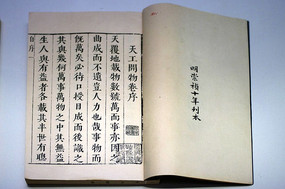 明崇禎十年刊本
天工開物卷序
天覆地載物數號萬而事亦因之
曲成而不遺豈人力也哉事物而
既萬矣必待口授目成而後識之
其與幾何萬事萬物之中其無益
生人與有益者各載其半世有聰
序